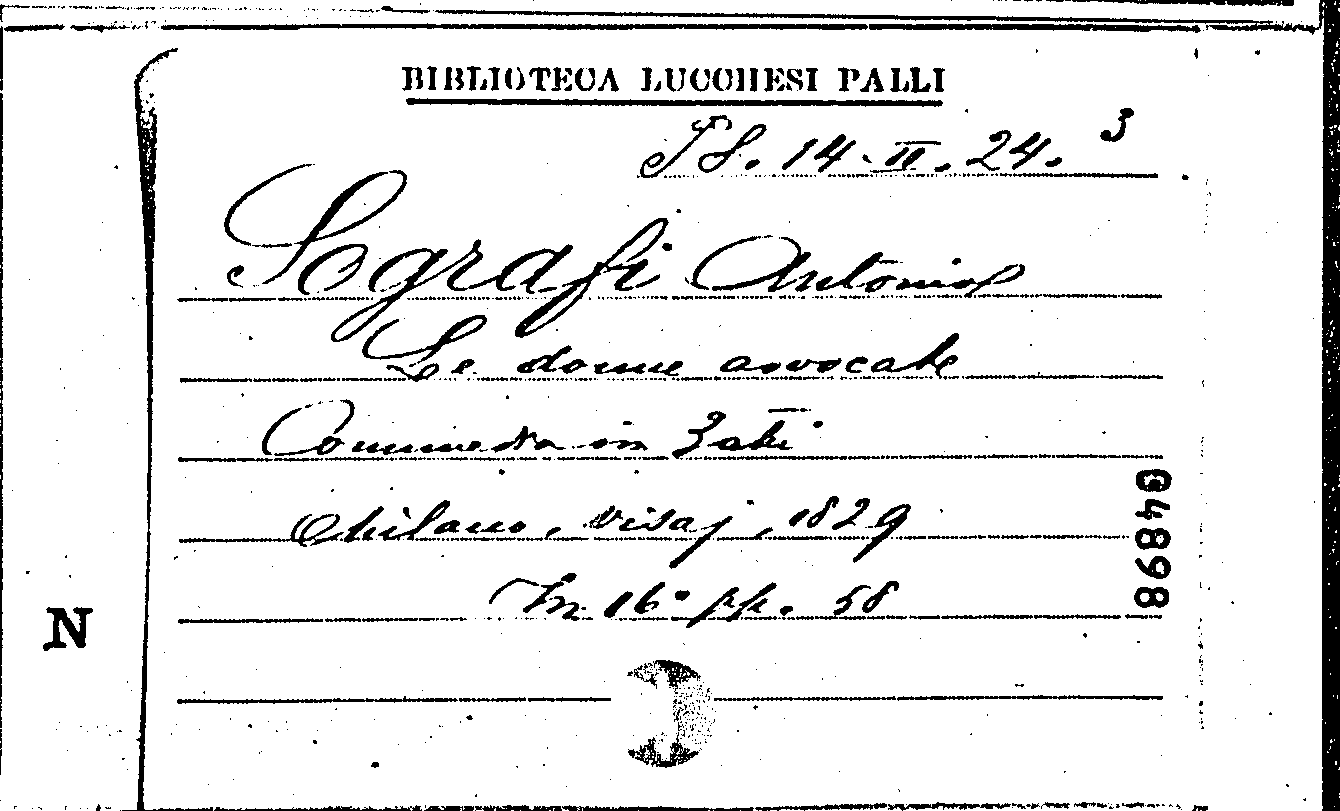 BIBLIOTECA LUCCHESI PALLI
TS. 14. II. 24. 3
Sografi Antonio
Le donne avvocate
Commedia in 3 atti
Milano, Visaj, 1829
In 16° pp. 58
04898
N